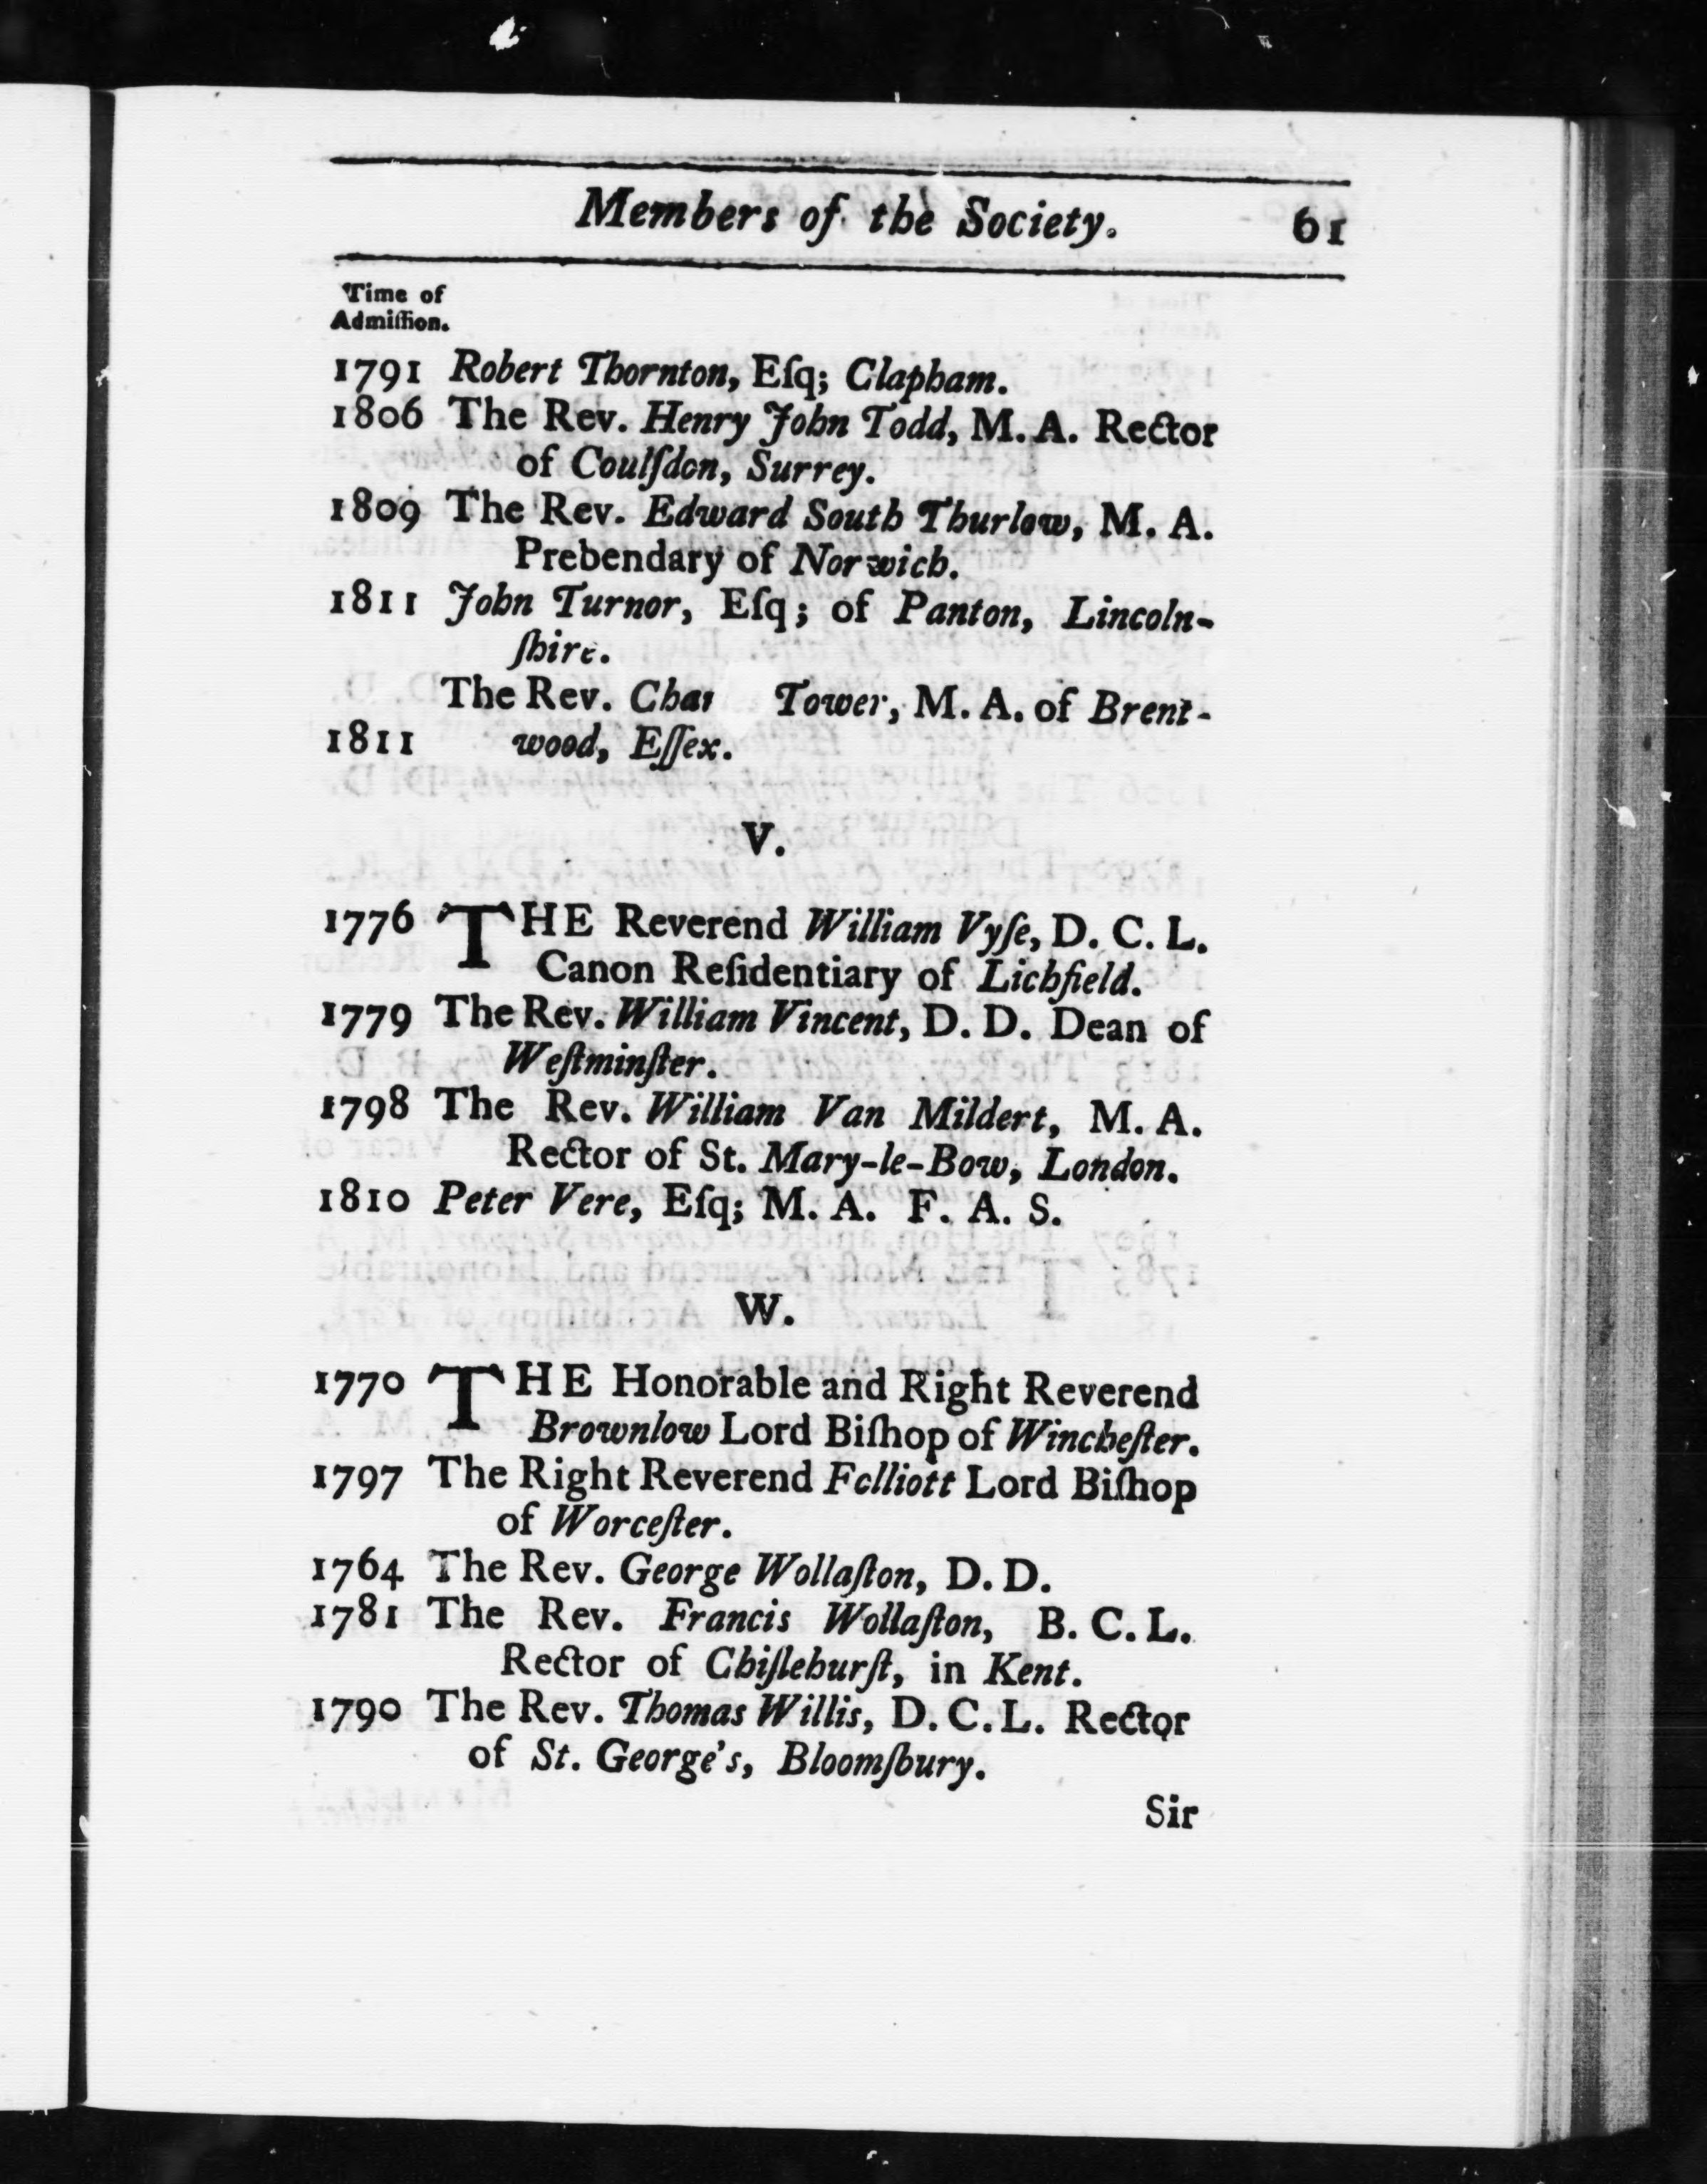 Members of the Society. 61
Time of
Admiſſion.
1791 Robert Thornton, Eſq; Clapham.
1806 The Rev. Henry John Todd, M. A. Rector
of Coulſdon, Surrey.
1809 The Rev. Edward South Thurlow, M. A.
Prebendary of Norwich.
1811 John Turnor, Eſq; of Panton, Lincoln-
ſhire.
The Rev. Tower, M. A. of Brent-
1811 wood, Eſſex.
V.
1776 THE Reverend William Vyſe, D. C. L.
Canon Reſidentiary of Lichfield.
1779 The Rev. William Vincent, D. D. Dean of
Weſtminſter.
1798 The Rev. William Van Mildert, M. A.
Rector of St. Mary-le-Bow, London.
1810 Peter Vere, Eſq; M. A. F. A. S.
W.
1770 THE Honorable and Right Reverend
Brownlow Lord Biſhop of Wincheſter.
1797 The Right Reverend Fclliott Lord Biſhop
of Worceſter.
1764 The Rev. George Wollaſton, D. D.
1781 The Rev. Francis Wollaſton, B. C. L.
Rector of Chiſlehurſt, in Kent.
1790 The Rev. Thomas Willis, D. C. L. Rector
of St. George's, Bloomſbury.
Sir